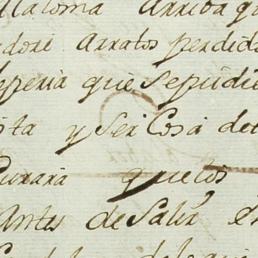 Paloma Arriba q
dose Arratos perdid
speria que sepudie
sta y ser Cosa de
Durara quelos
Antes de Salir e